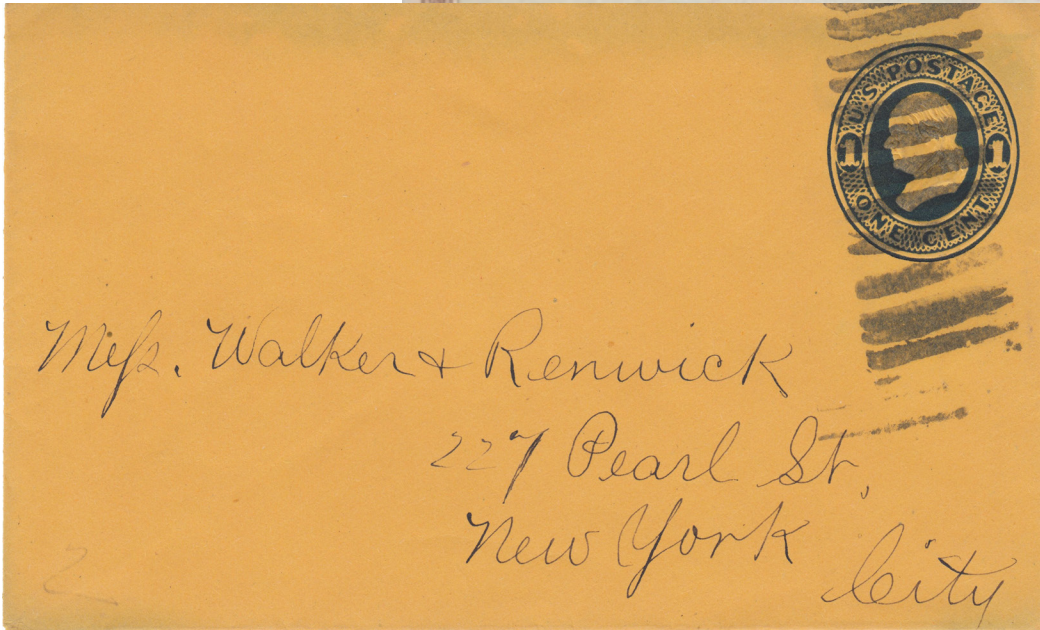 U.S. POSTAGE
1 1
ONE CENT
Mess. Walker & Renwick
227 Pearl St,
New York
City
2